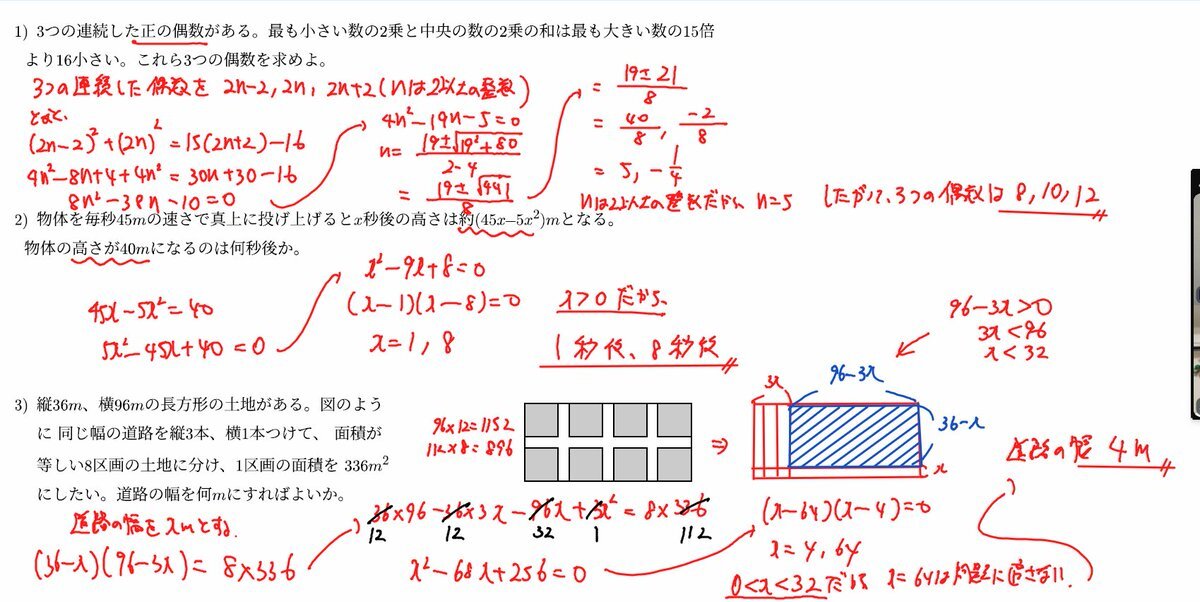 1) 3つの連続した正の偶数がある。最も小さい数の2乗と中央の数の2乗の和は最も大きい数の15倍
より16小さい。これら3つの偶数を求めよ。
3つの連続した偶数を 2n-2, 2n, 2n+2 (nは2以上の整数)
とおくと、
(2n-2)²+(2n)²=15(2n+2)-16
4n²-8n+4+4n²=30n+30-16
8n²-38n-10=0
4n²-19n-5=0
n=(19±√(19²+80))/(2・4)
=(19±√441)/8
=(19±21)/8
=40/8, -2/8
=5, -1/4
nは2以上の整数だから n=5
したがって、3つの偶数は 8, 10, 12
2) 物体を毎秒45mの速さで真上に投げ上げるとx秒後の高さは約(45x–5x²)mとなる。
物体の高さが40mになるのは何秒後か。
45x-5x²=40
5x²-45x+40=0
x²-9x+8=0
(x-1)(x-8)=0
x=1, 8
x>0だから、
1秒後、8秒後
3) 縦36m、横96mの長方形の土地がある。図のよう
に 同じ幅の道路を縦3本、横1本つけて、 面積が
等しい8区画の土地に分け、1区画の面積を 336m²
にしたい。道路の幅を何mにすればよいか。
道路の幅をxmとする.
(36-x)(96-3x)=8×336
96×12=1152
112×8=896
⇒
3x
96-3x
36-x
x
96-3x>0
3x<96
x<32
36×96-36×3x-96x+3x²=8×336
12 12 32 1 112
x²-68x+256=0
(x-64)(x-4)=0
x=4, 64
0<x<32だから x=64は問題に適さない.
道路の幅 4m